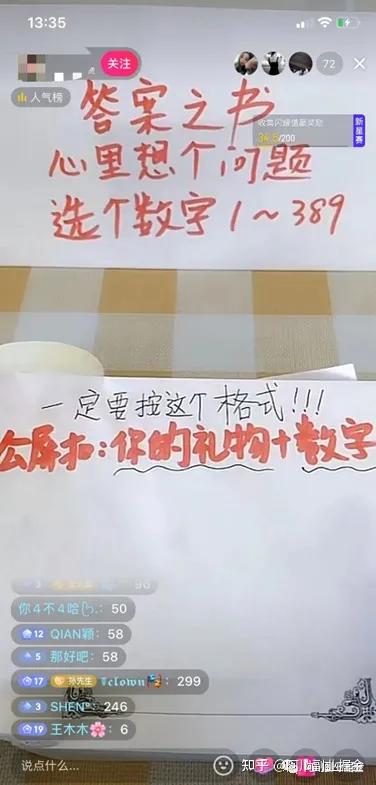 13:35
关注
72
人气榜
答案之书
收集闪耀值赢奖励
34.5/200
新星赛
心里想个问题
选个数字1~389
一定要按这个格式!!!
公屏扣:你的礼物+数字
96
你4不4哈: 50
12 QIAN颖: 58
5 那好吧: 58
17 孙先生 𝕿𝖈𝖑𝖔𝖜𝖓: 299
3 SHEN": 246
19 王木木🌸: 6
说点什么...
知乎
福山掘金